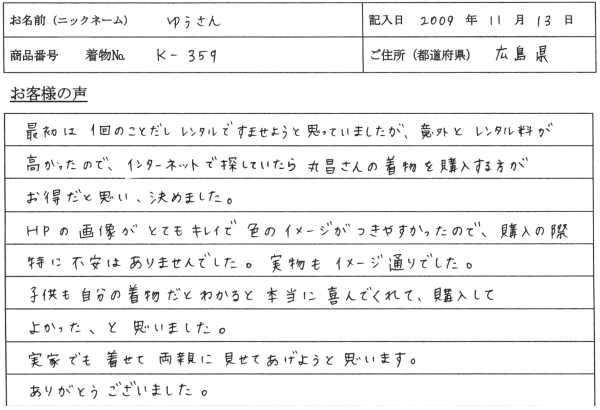 お名前（ニックネーム） ゆうさん 記入日 2009 年 11 月 13 日
商品番号 着物No. K-359 ご住所（都道府県） 広島県
お客様の声
最初は 1回のことだし レンタルですませようと思っていましたが、意外と レンタル料が
高かったので、インターネットで探していたら 丸昌さんの着物を購入する方が
お得だと思い、決めました。
HPの画像がとてもキレイで色のイメージがつきやすかったので、購入の際
特に不安はありませんでした。実物もイメージ通りでした。
子供も自分の着物だとわかると本当に喜んでくれて、購入して
よかった、と思いました。
実家でも着せて両親に見せてあげようと思います。
ありがとうございました。